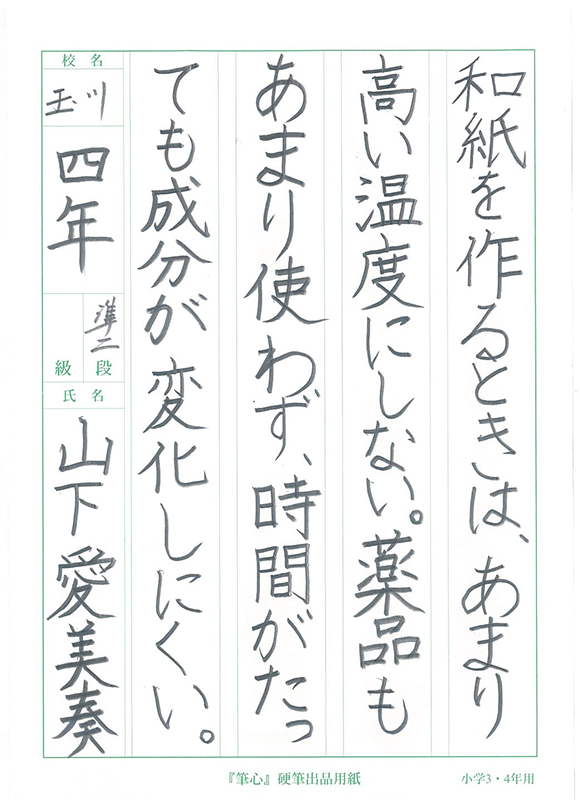 和紙を作るときは、あまり
高い温度にしない。薬品も
あまり使わず、時間がたっ
ても成分が変化しにくい。
校名
玉川
四年
準二
級段
氏名
山下愛美奏
『筆心』硬筆出品用紙
小学3・4年用